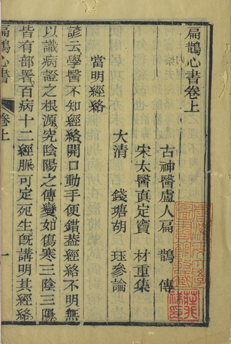 扁鵲心書卷上
古神醫盧人扁鵲傳
宋太醫真定竇材重集
大清錢塘胡珏參論
當明經絡
諺云學醫不知經絡開口動手便錯蓋經絡不明無
以識病證之根源究陰陽之傳變如傷寒三陰三陽
皆有部署百病十二經脈可定死生既講明其經絡
扁鵲心書
卷上
一